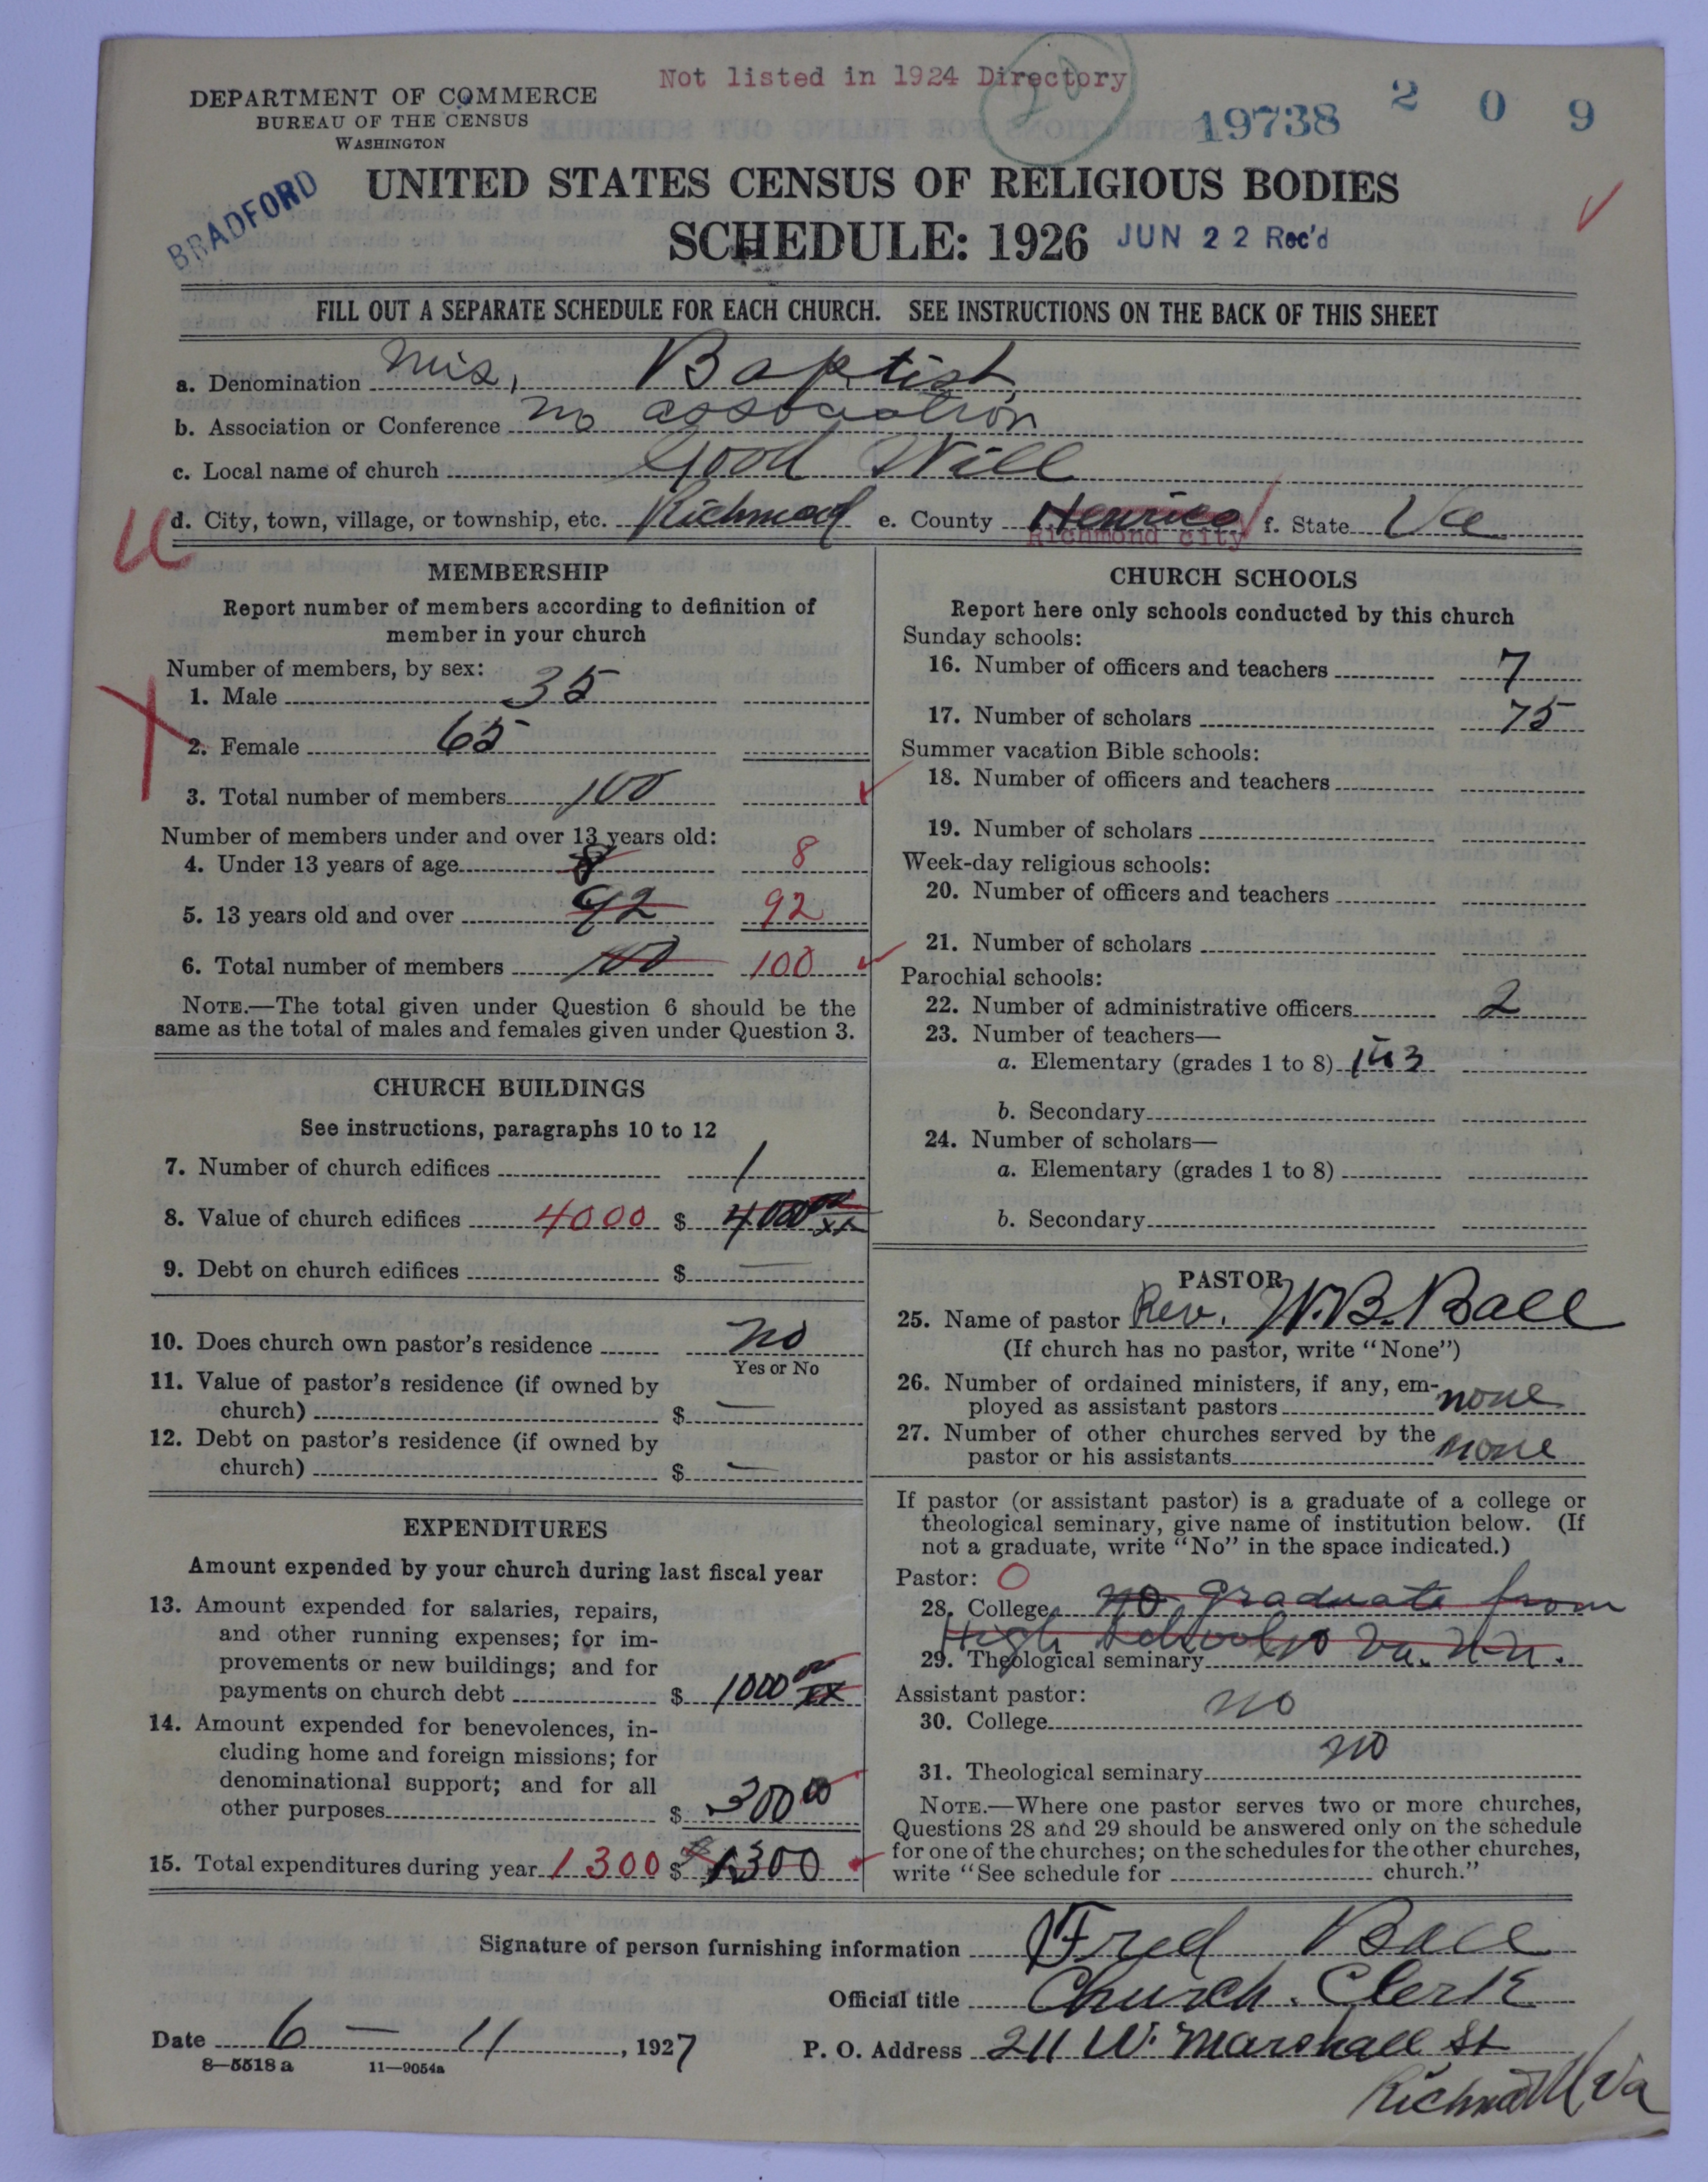 Not listed in 1924 Directory
DEPARTMENT OF COMMERCE
BUREAU OF THE CENSUS
WASHINGTON
19738 2 0 9
BRADFORD
UNITED STATES CENSUS OF RELIGIOUS BODIES
SCHEDULE: 1926 JUN 22 Rec'd
FILL OUT A SEPARATE SCHEDULE FOR EACH CHURCH. SEE INSTRUCTIONS ON THE BACK OF THIS SHEET
a. Denomination Mis, Baptist
b. Association or Conference no association
c. Local name of church Good Will
d. City, town, village, or township, etc. Richmond e. County Henrico f. State Va
Richmond city
U
MEMBERSHIP
Report number of members according to definition of
member in your church
Number of members, by sex:
1. Male 35
2. Female 65
3. Total number of members 100
Number of members under and over 13 years old:
4. Under 13 years of age 8 8
5. 13 years old and over 92 92
6. Total number of members 100 100
NOTE.—The total given under Question 6 should be the
same as the total of males and females given under Question 3.
CHURCH BUILDINGS
See instructions, paragraphs 10 to 12
7. Number of church edifices 1
8. Value of church edifices 4000 $ 4000 00/xx
9. Debt on church edifices $ —
10. Does church own pastor's residence no
Yes or No
11. Value of pastor's residence (if owned by
church) $ —
12. Debt on pastor's residence (if owned by
church) $ —
EXPENDITURES
Amount expended by your church during last fiscal year
13. Amount expended for salaries, repairs,
and other running expenses; for im-
provements or new buildings; and for
payments on church debt $ 1000 00/xx
14. Amount expended for benevolences, in-
cluding home and foreign missions; for
denominational support; and for all
other purposes $ 300 00
15. Total expenditures during year 1300 $ 1300
CHURCH SCHOOLS
Report here only schools conducted by this church
Sunday schools:
16. Number of officers and teachers 7
17. Number of scholars 75
Summer vacation Bible schools:
18. Number of officers and teachers
19. Number of scholars
Week-day religious schools:
20. Number of officers and teachers
21. Number of scholars
Parochial schools:
22. Number of administrative officers 2
23. Number of teachers—
a. Elementary (grades 1 to 8)
b. Secondary
24. Number of scholars—
a. Elementary (grades 1 to 8)
b. Secondary
PASTOR
25. Name of pastor Rev. W.B. Ball
(If church has no pastor, write "None")
26. Number of ordained ministers, if any, em-
ployed as assistant pastors none
27. Number of other churches served by the
pastor or his assistants none
If pastor (or assistant pastor) is a graduate of a college or
theological seminary, give name of institution below. (If
not a graduate, write "No" in the space indicated.)
Pastor: O
28. College no graduate from
High School
29. Theological seminary Va.
Assistant pastor:
30. College no
31. Theological seminary no
NOTE.—Where one pastor serves two or more churches,
Questions 28 and 29 should be answered only on the schedule
for one of the churches; on the schedules for the other churches,
write "See schedule for church."
Signature of person furnishing information Fred Ball
Official title Church Clerk
Date 6 — 11, 1927 P. O. Address 211 W. Marshall St
8—5518a 11—9054a
Richmond Va